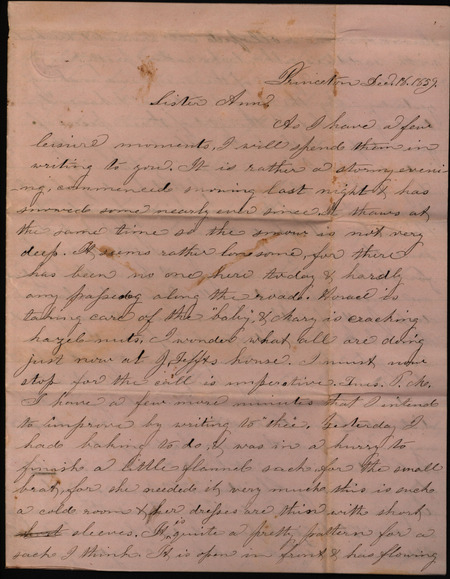 Princeton Dec. 18. 1859.
Sister Ann
As I have a few
leisure moments, I will spend them in
writing to you. It is rather a stormy eveni
-ng, commenced snowing last night & has
snowed some nearly ever since. It thaws at
the same time so the snow is not very
deep. It seems rather lonesome, for there
has been no one here today & hardly
any passed along the roads. Horace is
taking care of the "baby", & Mary is cracking
hazel nuts, I wonder what all are doing
just now at J. Taffts house. I must now
stop for the call is imperative. Tues.
I have a few more minutes that I intend
to improve by writing to thee. Yesterday I
had baking to do, & was in a hurry to
finish a little flannel sack for the small
brat, for she needed it very much this is such
a cold room & her dresses are thin with short
sleeves. It is quite a pretty pattern for a
sack I think. It is open in front & has flowing